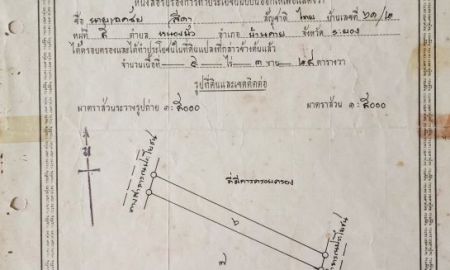 หนังสือรับรองการทำประโยชน์
ชื่อ สีดา สัญชาติ ไทย บ้านเลขที่ ๖๑/๒
หมู่ที่ ๕ ตำบล หนองบัว อำเภอ บ้านค่าย จังหวัด ระยอง
ได้ครอบครองและได้ทำประโยชน์ในที่ดินแปลงที่กล่าวข้างต้นแล้ว
จำนวนเนื้อที่ ไร่ ๓ งาน ๒๘ ตารางวา
รูปที่ดินและเขตติดต่อ
มาตราส่วนระวางรูปถ่าย ๑:๕๐๐๐ มาตราส่วน ๑:๕๐๐๐
น
ทางสาธารณประโยชน์
ที่มีการครอบครอง
๖